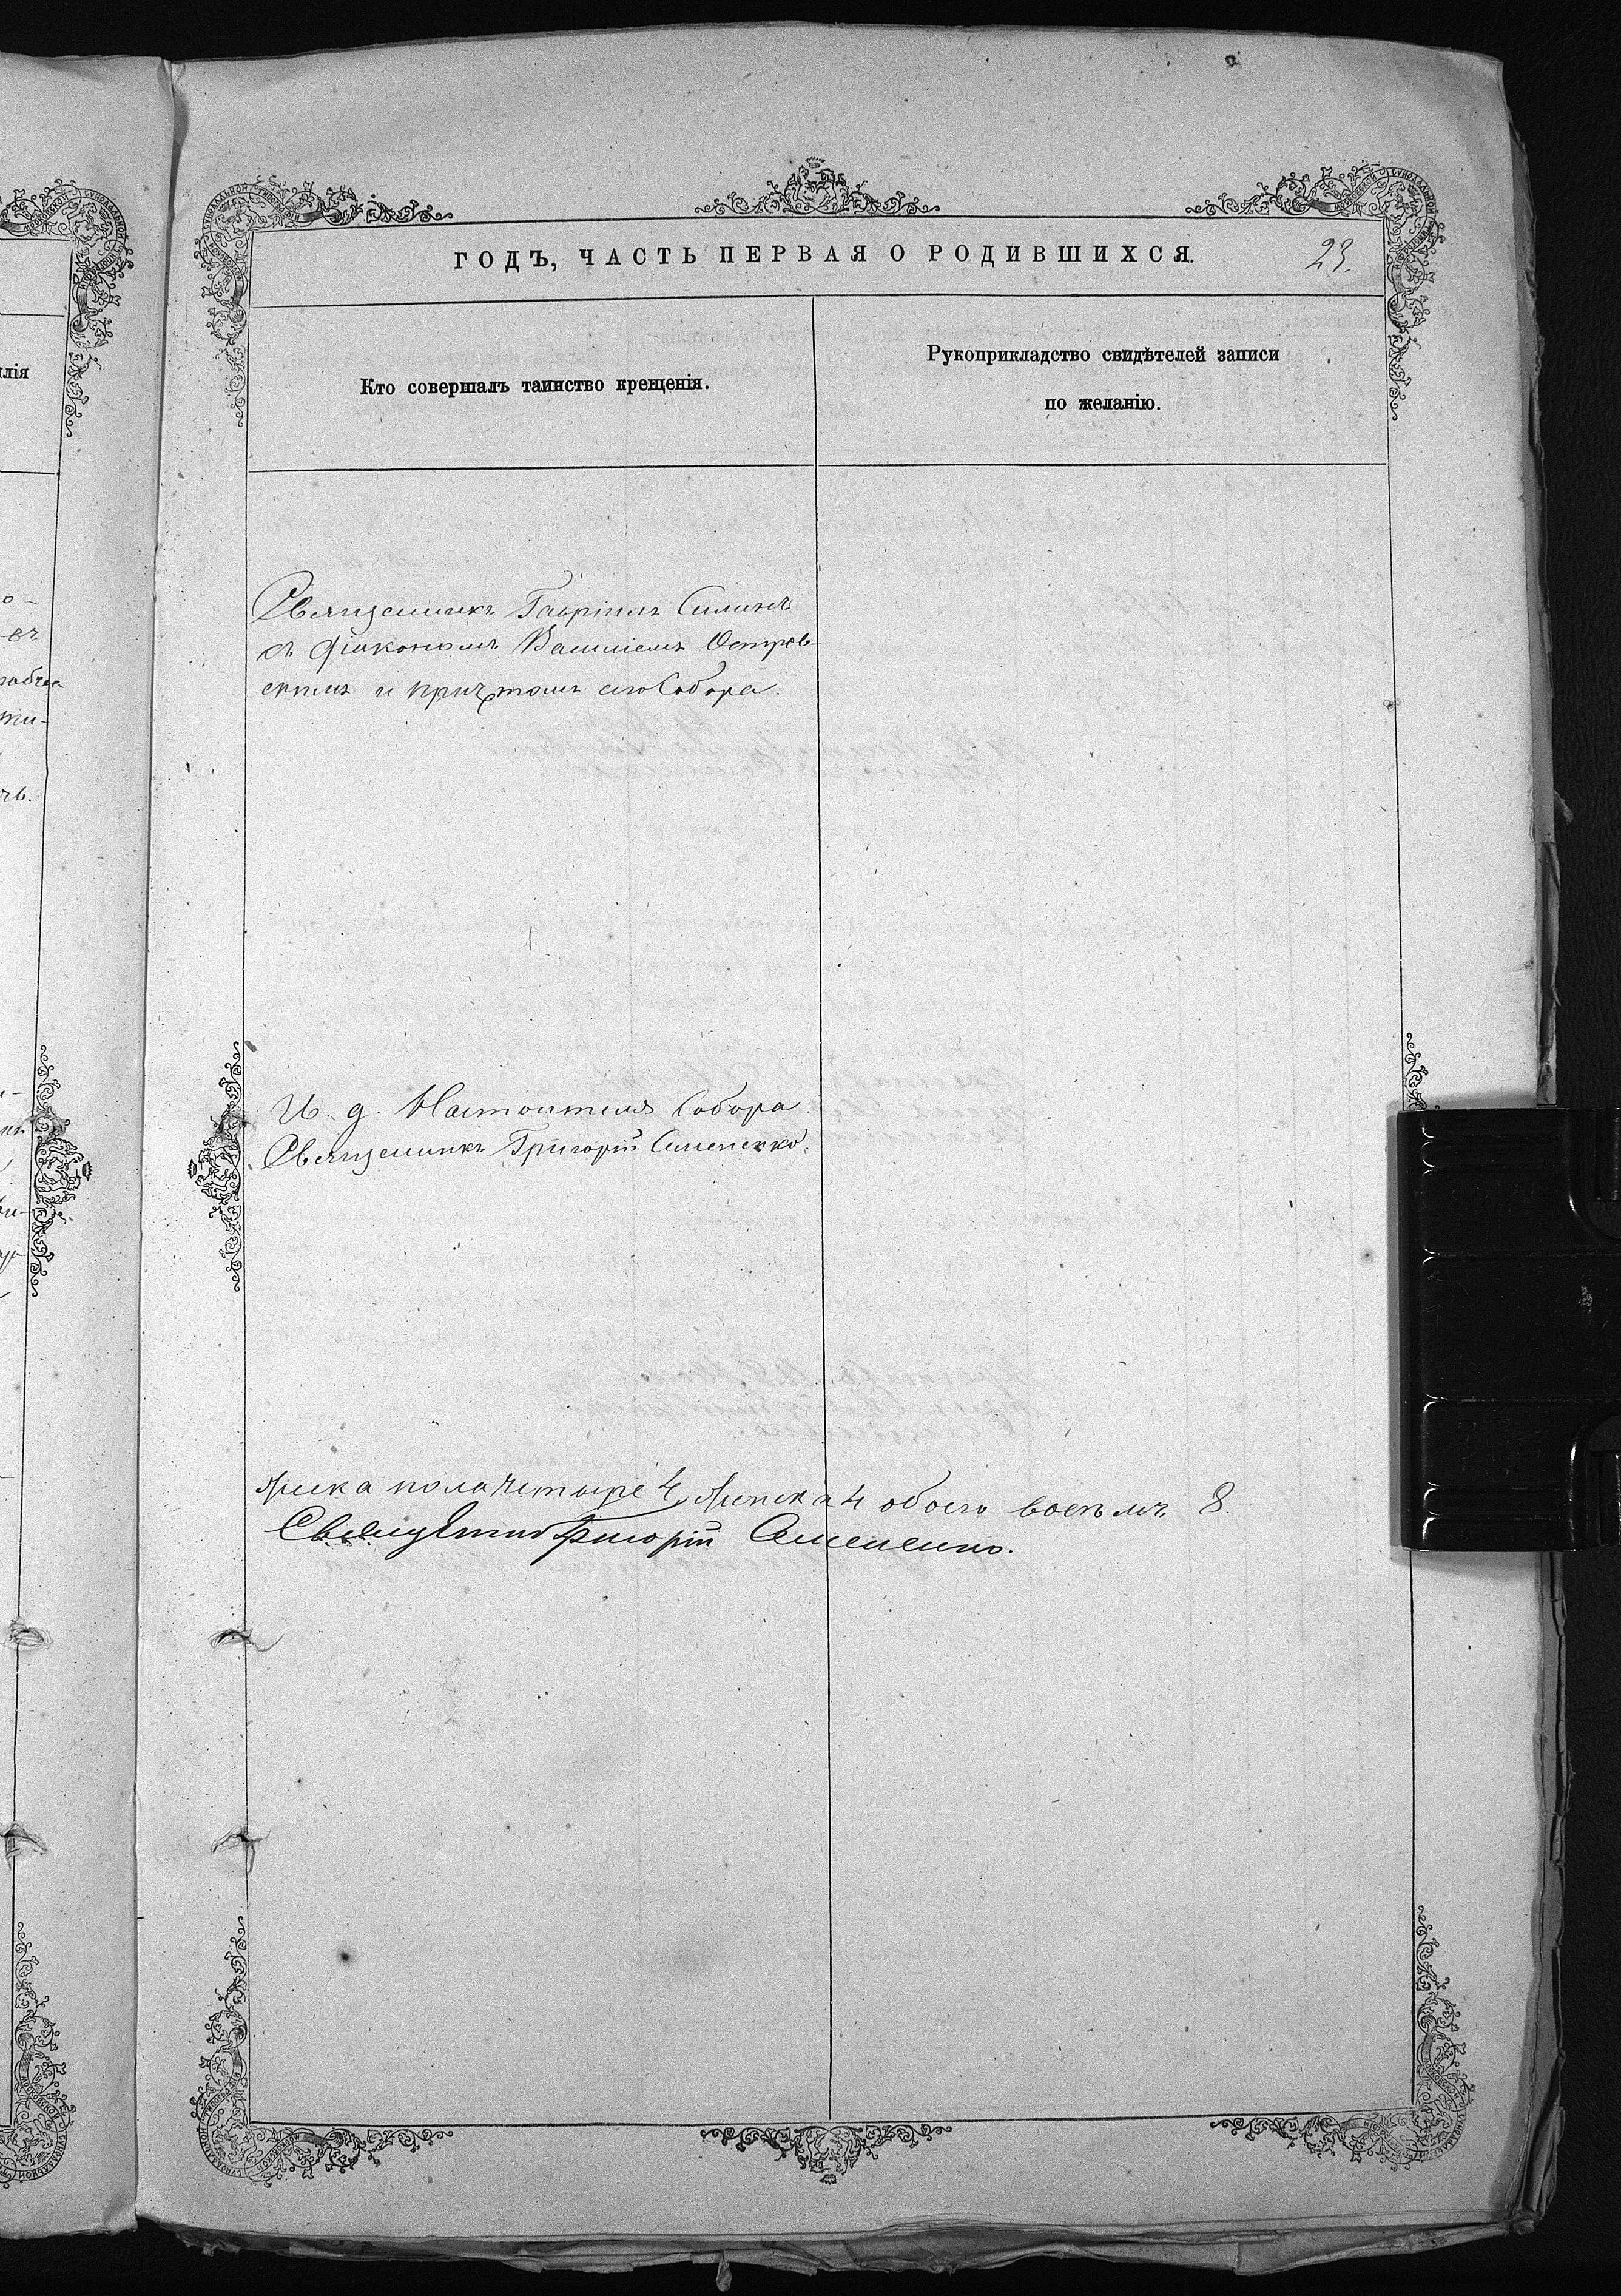 ГОДЪ, ЧАСТЬ ПЕРВАЯ О РОДИВШИХСЯ.
23.
Кто совершалъ таинство крещенія.
Рукоприкладство свидѣтелей записи
по желанію.
Священникъ Гавріилъ Силинъ
съ діакономъ Василіемъ Остров-
скимъ и причтомъ сего Собора.
И. д. Настоятеля Собора
Священникъ Григорій Симененко.
Мужеска пола четыре 4, Женска 4 обоего восемь 8.
Священникъ Григорій Симененко.